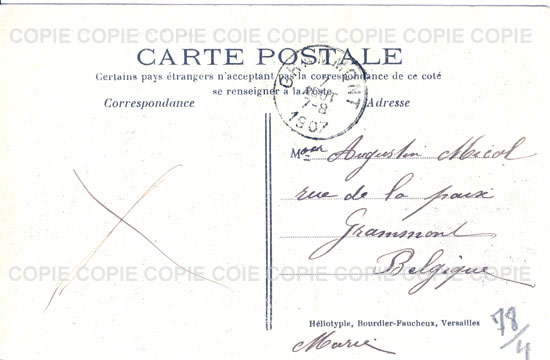 COPIE COPIE COPIE COIE COPIE COPIE COPIE
CARTE POSTALE
Certains pays étrangers n'acceptant pas la correspondance de ce coté
se renseigner à la Poste.
Correspondance
Adresse
GRAMMONT
7
AOUT
7-8
1907
Augustin Micol
rue de la paix
Grammont
Belgique
COPIE COPIE COPIE COIE COPIE COPIE COPIE
Héliotypie, Bourdier-Faucheux, Versailles
78/4
Marie